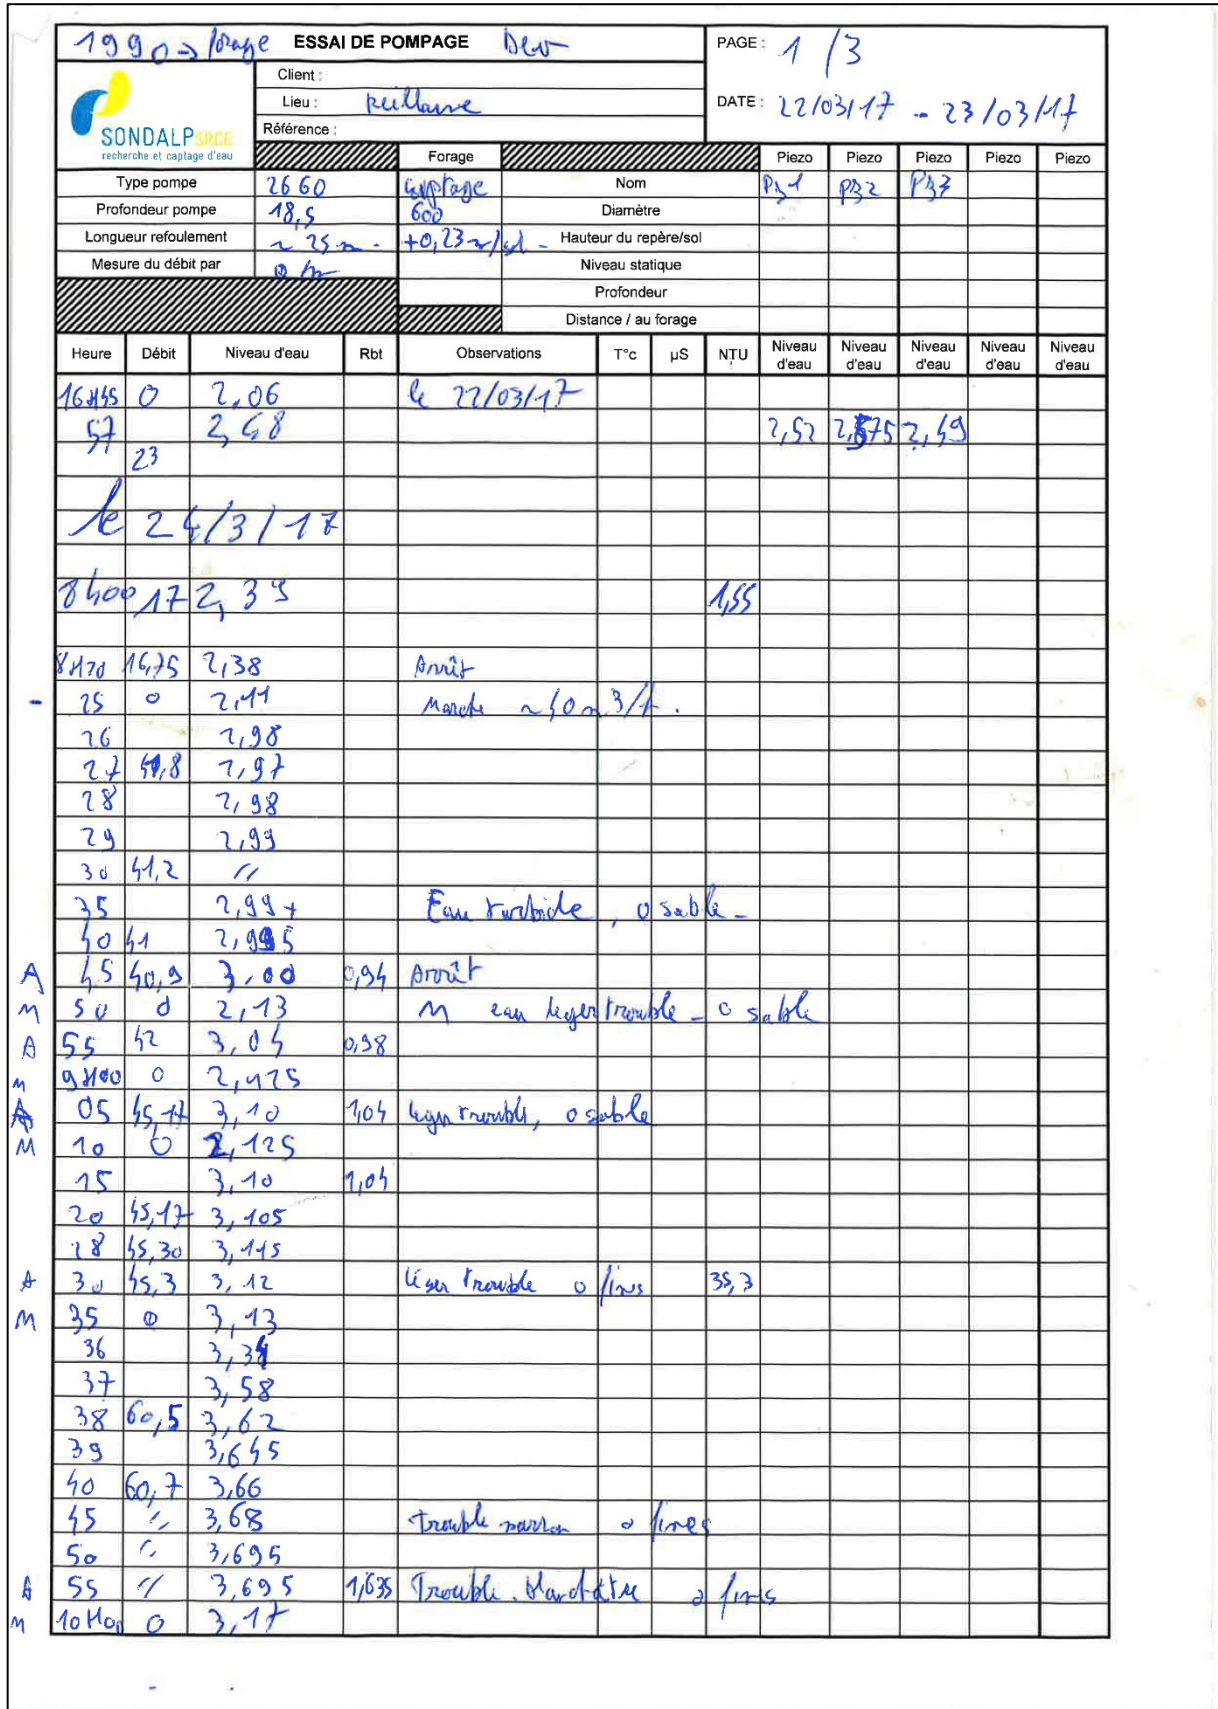 1990 → forage ESSAI DE POMPAGE Dev PAGE : 1 /3
Client :
Lieu : Reillanne DATE : 22/03/17 - 23/03/17
Référence :
SONDALP SRCE
recherche et captage d'eau
Forage Piezo Piezo Piezo Piezo Piezo
Type pompe 2660 captage Nom Pz1 Pz2 Pz3
Profondeur pompe 18,5 600 Diamètre
Longueur refoulement ~ 25 m. +0,23 m/sol - Hauteur du repère/sol
Mesure du débit par Niveau statique
Profondeur
Distance / au forage
Heure Débit Niveau d'eau Rbt Observations T°c µS NTU Niveau d'eau Niveau d'eau Niveau d'eau Niveau d'eau Niveau d'eau
16H45 0 2,06 le 22/03/17
57 2,48 2,52 2,49
23
le 24/3/17
8h00 17 2,39 1,55
8H20 16,75 2,38 Arrêt
- 25 0 2,11 Marche ~40 m3/h.
26 2,98
27 41,8 2,97
28 2,98
29 2,99
30 41,2 //
35 2,99+ Eau turbide, 0 sable -
40 41 2,995
A 45 40,9 3,00 0,94 Arrêt
M 50 0 2,13 M eau leger trouble - 0 sable
A 55 42 3,04 0,98
M 9H00 0 2,125
A 05 45,17 3,10 1,04 leger trouble, 0 sable
M 10 0 2,125
15 3,10 1,04
20 45,17 3,105
28 45,30 3,115
A 30 45,3 3,12 léger trouble 0 fines 35,3
M 35 0 3,13
36 3,34
37 3,58
38 60,5 3,62
39 3,645
40 60,7 3,66
45 // 3,68 trouble marron 0 fines
50 // 3,695
A 55 // 3,695 1,635 Trouble. blanchâtre 0 fines
M 10H00 0 3,17